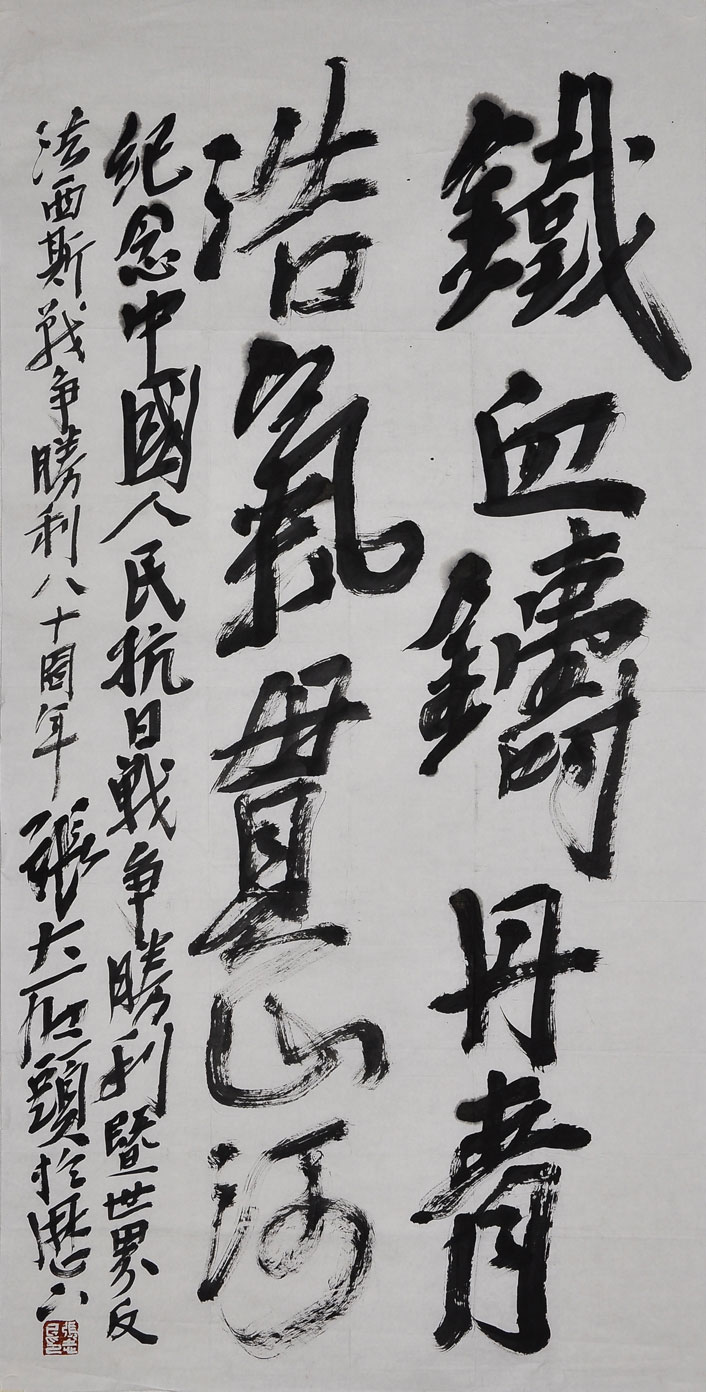 鐵血鑄丹青
浩氣貫山河
紀念中國人民抗日戰争勝利暨世界反
法西斯戰争勝利八十周年 張大石頭於歷下
張志民印